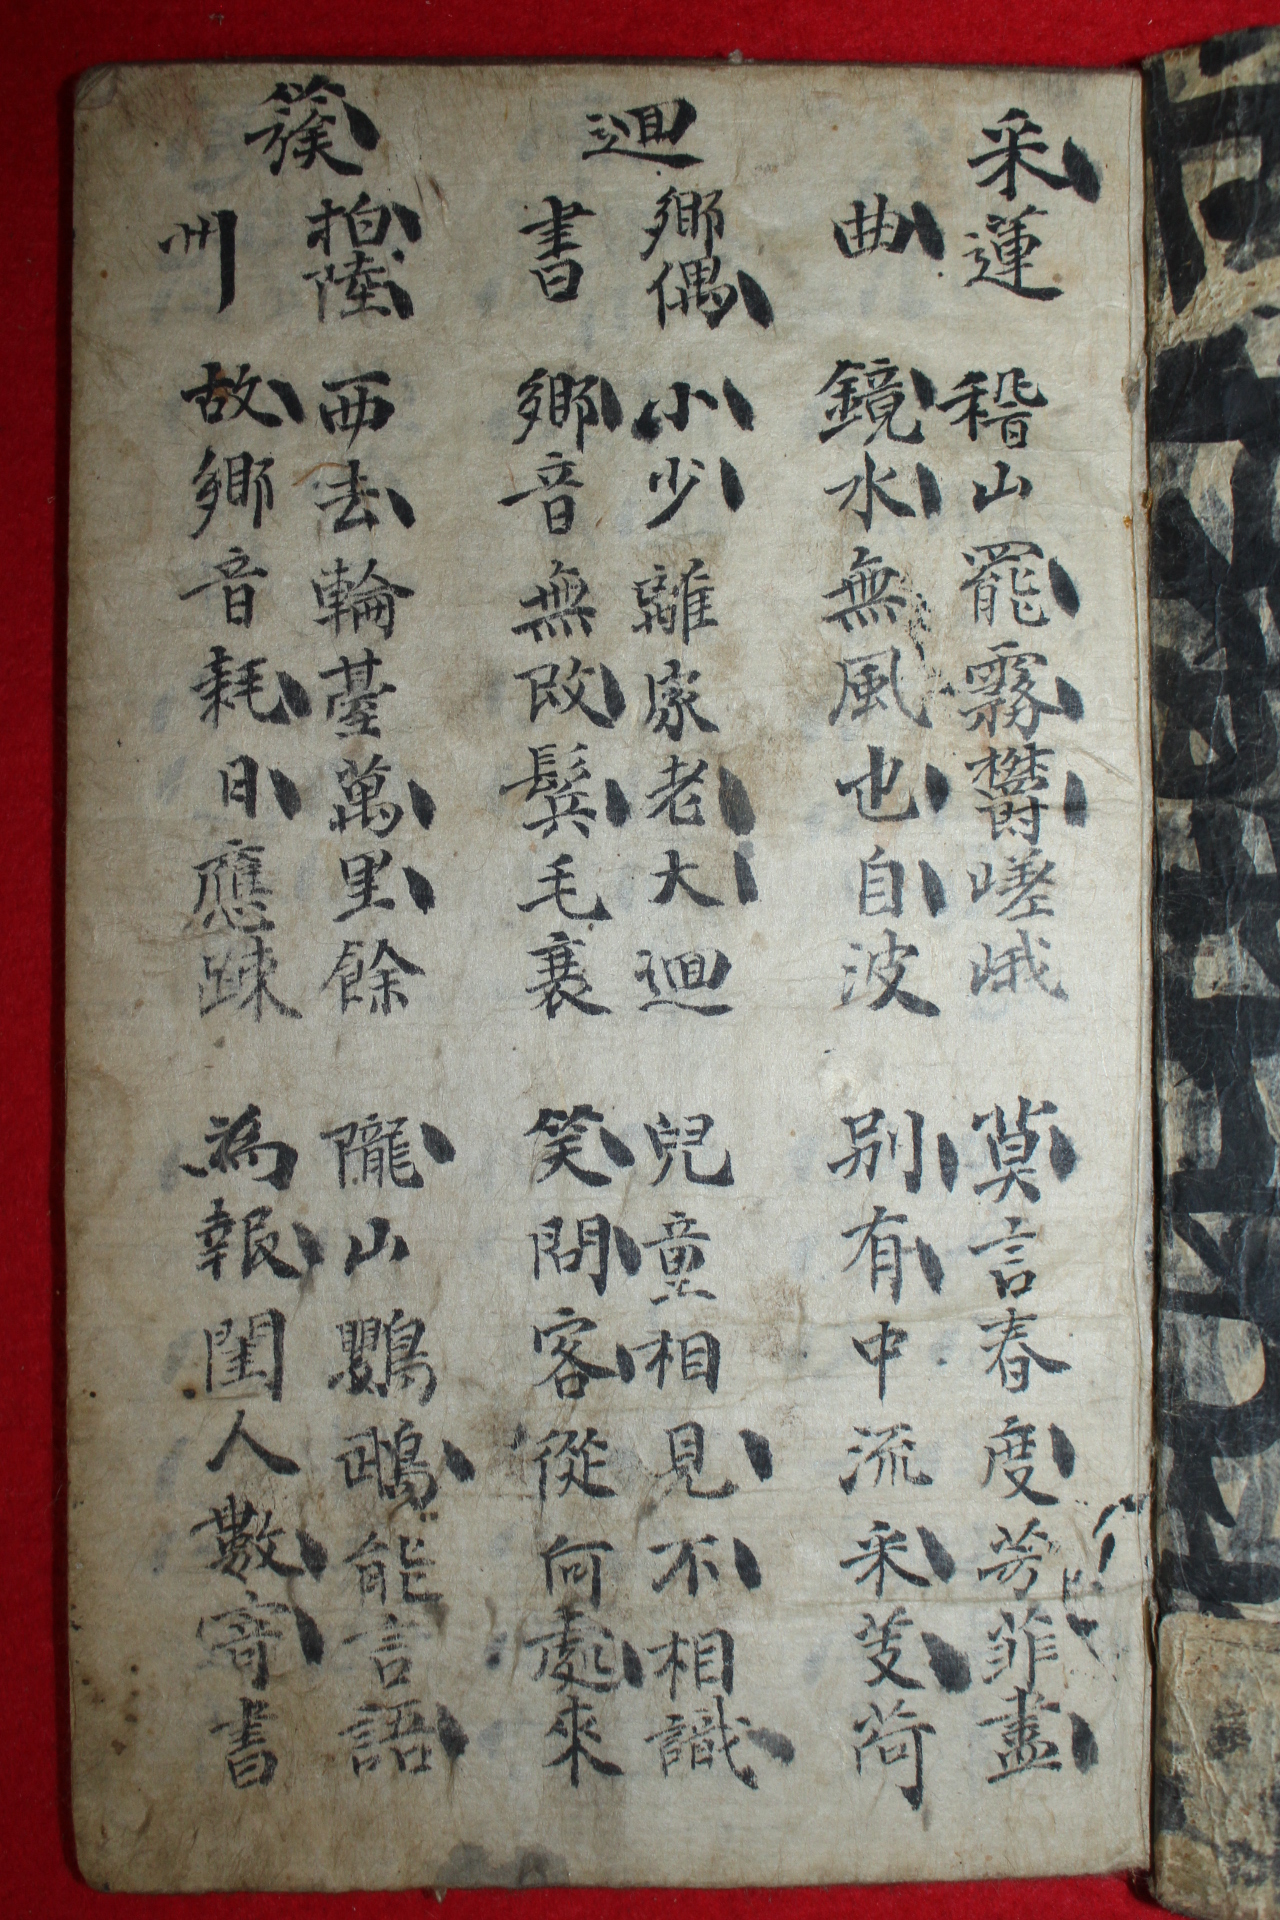 采蓮 稽山罷霧欝嵯峨 莫言春度芳菲盡
曲 鏡水無風也自波 別有中流采芰荷
迴鄉偶 小少離家老大迴 兒童相見不相識
書 鄉音無改鬢毛衰 笑問客從何處來
簇拍陸 西去輪臺萬里餘 隴山鸚鵡能言語
州 故鄉音耗日應踈 為報閨人數寄書